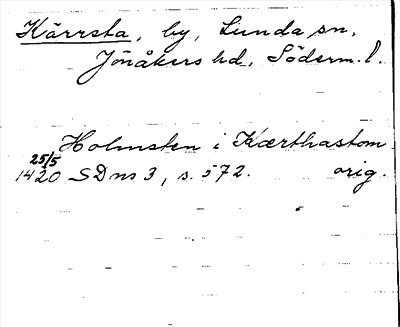 Kärrsta, by, Lunda sn,
Jönåkers hd, Söderm. l.
Holmsten i Kærthastom
25/5
1420 SD ns 3, s. 572. orig.